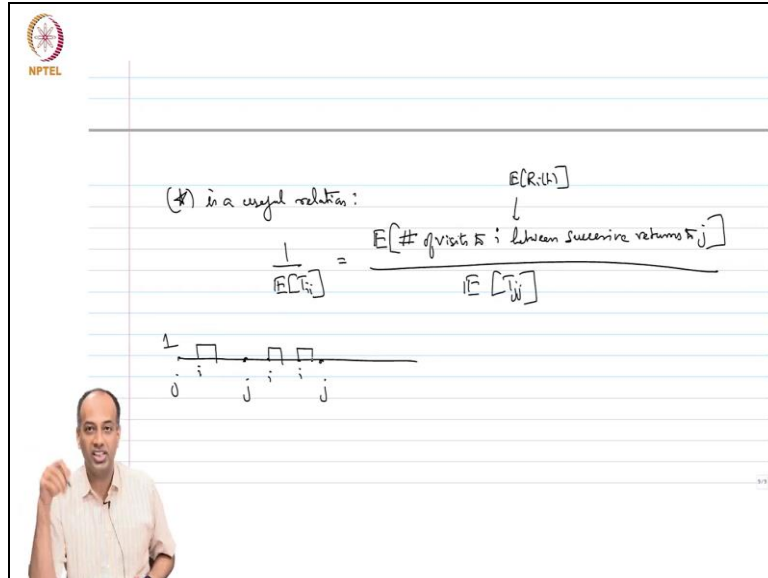 NPTEL
(*) is a useful relation:
E[Ri(1)]
↓
1 / E[Tii] = E[# of visits to i between successive returns to j] / E[Tjj]
1
j i j i i j